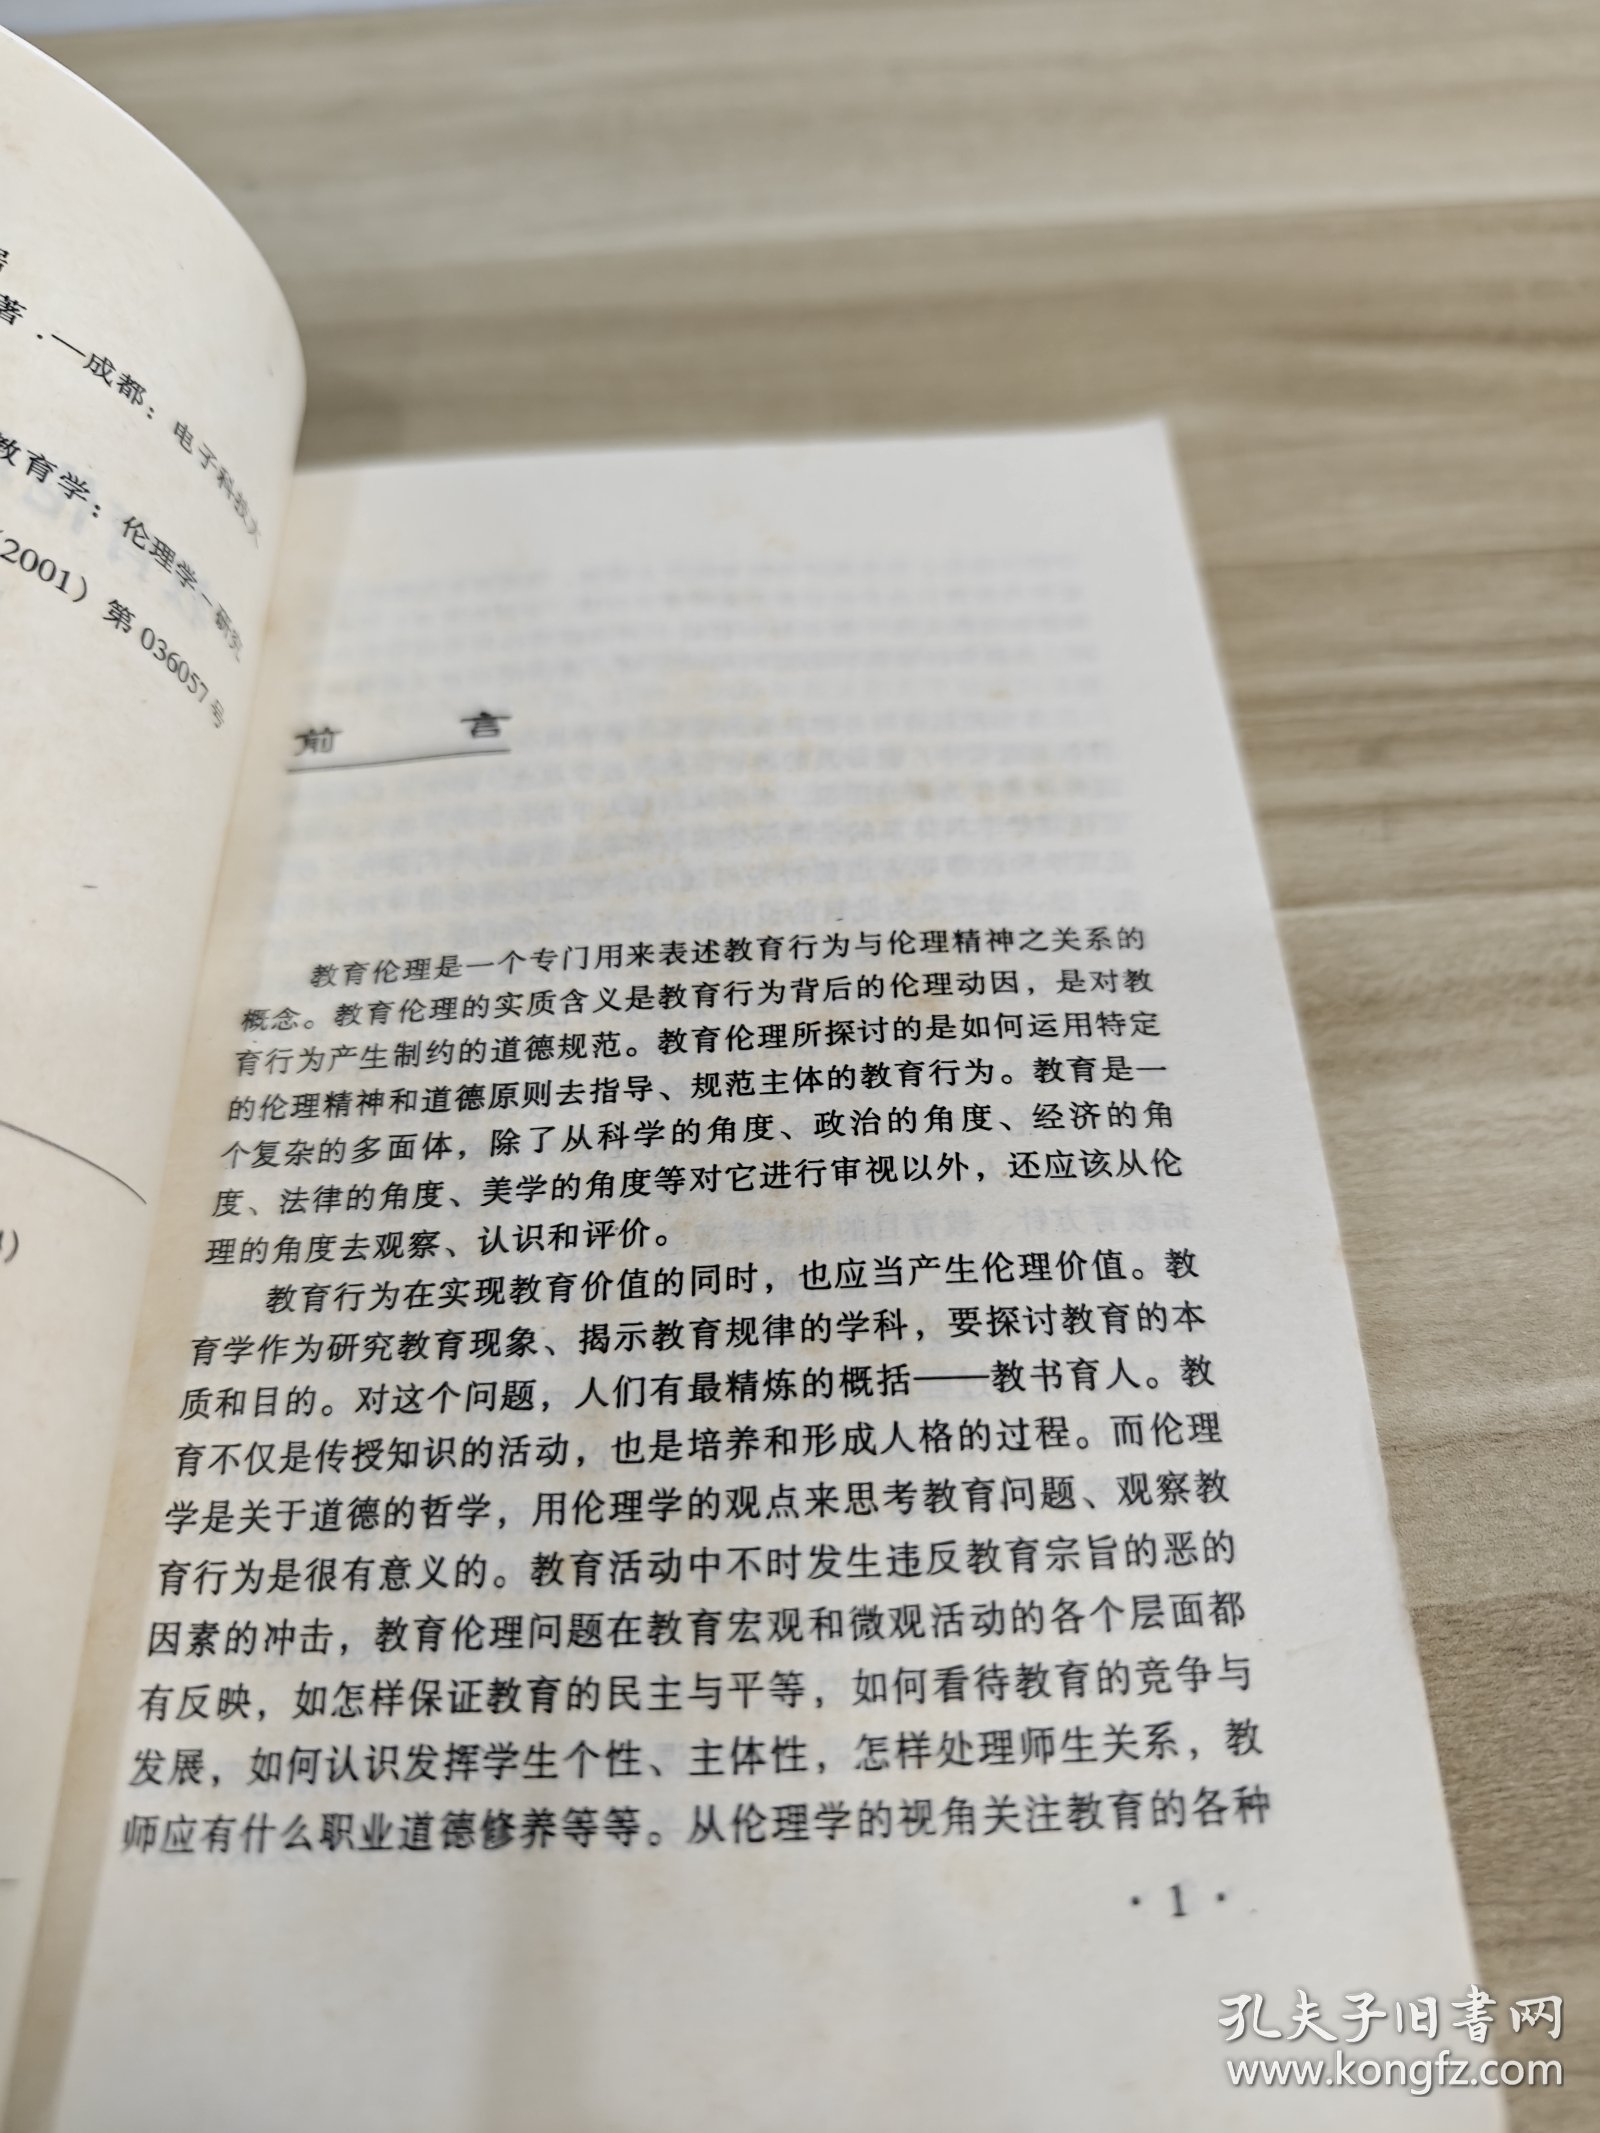 著.—成都：电子科技大
教育学：伦理学-研究
(2001）第 036057 号
前言
教育伦理是一个专门用来表述教育行为与伦理精神之关系的
概念。教育伦理的实质含义是教育行为背后的伦理动因，是对教
育行为产生制约的道德规范。教育伦理所探讨的是如何运用特定
的伦理精神和道德原则去指导、规范主体的教育行为。教育是一
个复杂的多面体，除了从科学的角度、政治的角度、经济的角
度、法律的角度、美学的角度等对它进行审视以外，还应该从伦
理的角度去观察、认识和评价。
教育行为在实现教育价值的同时，也应当产生伦理价值。教
育学作为研究教育现象、揭示教育规律的学科，要探讨教育的本
质和目的。对这个问题，人们有最精炼的概括——教书育人。教
育不仅是传授知识的活动，也是培养和形成人格的过程。而伦理
学是关于道德的哲学，用伦理学的观点来思考教育问题、观察教
育行为是很有意义的。教育活动中不时发生违反教育宗旨的恶的
因素的冲击，教育伦理问题在教育宏观和微观活动的各个层面都
有反映，如怎样保证教育的民主与平等，如何看待教育的竞争与
发展，如何认识发挥学生个性、主体性，怎样处理师生关系，教
师应有什么职业道德修养等等。从伦理学的视角关注教育的各种
· 1 ·
孔夫子旧书网
www.kongfz.com